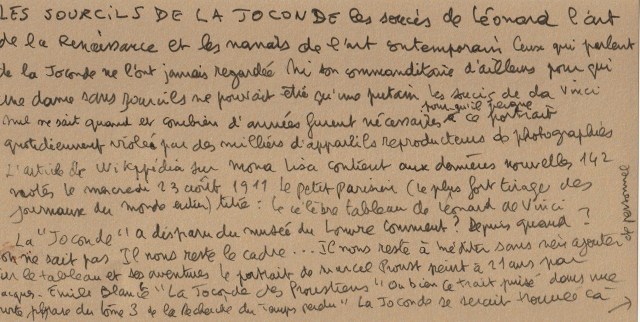 LES SOURCILS DE LA JOCONDE les secrets de Léonard l'art
de la Renaissance et les nanars de l'art contemporain Ceux qui parlent
de la Joconde ne l'ont jamais regardée Ni son commanditaire d'ailleurs pour qui
une dame sans sourcils ne pouvait être qu'une putain les de da Vinci
nul ne sait quand et combien d'années furent nécessaires pour qu'il peigne ce portrait
quotidiennement violée par des milliers d'appareils reproducteurs de photographies
L'article de Wikipédia sur Mona Lisa contient aux dernières nouvelles 142
notes le mercredi 23 août 1911 le petit Parisien (le plus fort tirage des
journaux du monde entier) titre : le célèbre tableau de Léonard de Vinci
La "Joconde" a disparu du musée du Louvre Comment ? Depuis quand ?
on ne sait pas Il nous reste le cadre... Il nous reste à méditer sans rien ajouter
sur le tableau et ses aventures le portrait de Marcel Proust peint à 21 ans par
Jacques-Emile Blanche "La Joconde des Proustiens" Ou bien ce trait puisé dans une
phrase du tome 3 de la Recherche du Temps perdu "La Joconde se serait trouvée là